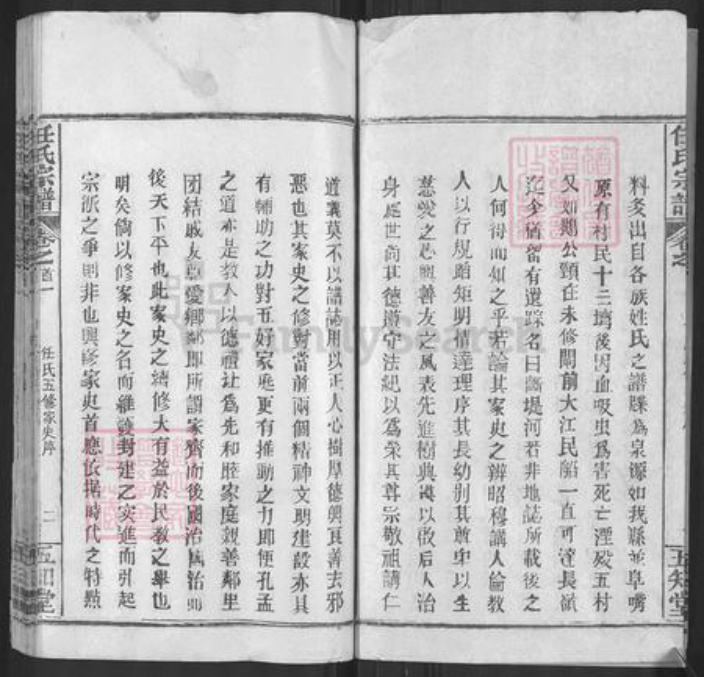 任氏宗譜
卷之
五知堂
料多出自各族姓氏之譜牒為泉源如我縣並阜嘴
原有村民十三塆後因血吸虫為害死亡湮殁五村
又如鵝公頸在未修閘前大江民船一直可達長嶺
迄今猶留有遺踪名曰斷堤河若非地誌所載後之
人何得而知之乎若論其家史之辨昭穆講人倫教
人以行規蹈矩明情達理序其長幼別其尊卑以生
慈愛之心興善友之風表先進樹典模以啟后人治
身處世尚其德遵守法紀以為榮其尊宗敬祖講仁
道義莫不以譜誌用以正人心樹厚德興真善去邪
惡也其家史之修對當前兩個精神文明建設亦具
有輔助之功對五好家庭更有推動之力即使孔孟
之道亦是教人以德禮让為先和睦家庭親善鄰里
团結戚友 愛鄉鄰即所謂家齊而後國治國治而
後天下平也此家史之續修大有益於民教之舉也
明矣倘以修家史之名而維護封建之实進而引起
宗派之爭則非也興修家史首應依据時代之特點
任氏宗譜
卷之首一
任氏五修家史序
二
五知堂
FamilySearch